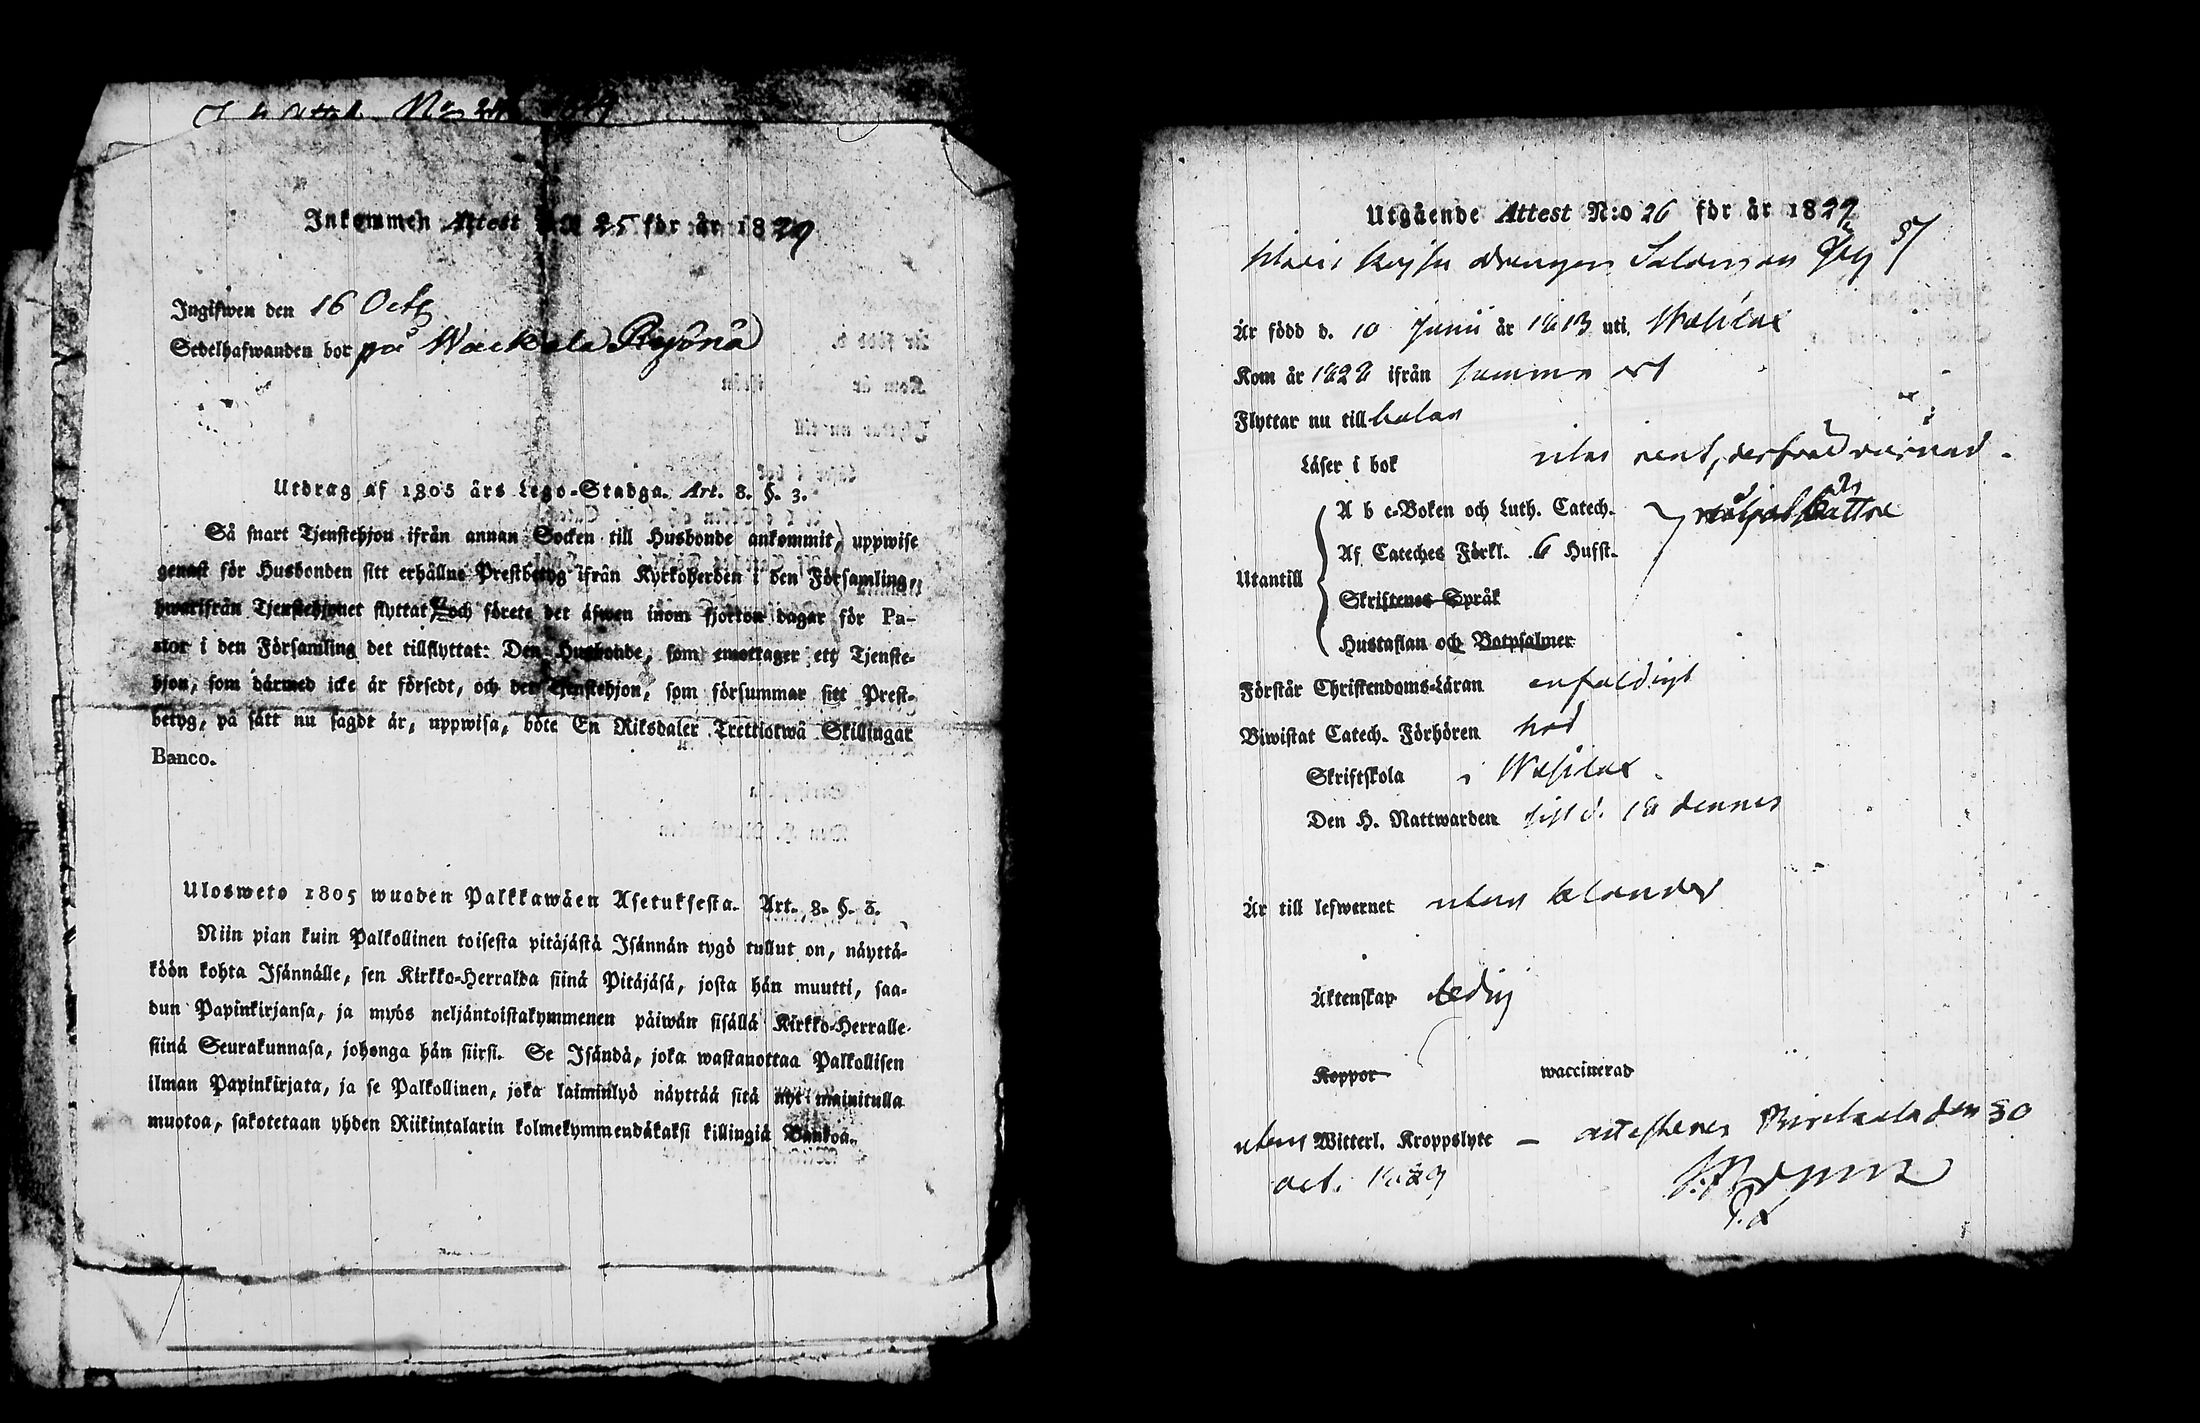 Inkommen Attest N:o 25 för år 1829
Ingifwen den 16 Octb
Sedelhafwanden bor på Wackala Rejönä
Utdrag af 1805 års Lego-Stadga. Art. 8. §. 3.
Så snart Tjenstehjon ifrån annan Socken till Husbonde ankommit, uppwise
genast för Husbonden sitt erhållne Prestbetyg ifrån Kyrkoherden i den Församling,
hwarifrån Tjenstehjonet flyttat och förete det äfwen inom fjorton dagar för Pa-
stor i den Församling det tillflyttat: Den Husbonde, som emottager ett Tjenste-
hjon, som därmed icke är försedt, och det Tjenstehjon, som försummar sitt Prest-
betyg, på sätt nu sagdt är, uppwisa, böte En Riksdaler Trettiotwå Skillingar
Banco.
Ulosweto 1805 wuoden Palkkawäen Asetuksesta. Art. 8. §. 3.
Niin pian kuin Palkollinen toisesta pitäjästä Isännän tygö tullut on, näyttä-
köön kohta Isännälle, sen Kirkko-Herralda siinä Pitäjäsä, josta hän muutti, saa-
dun Papinkirjansa, ja myös neljäntoistakymmenen päiwän sisällä Kirkko-Herralle
siinä Seurakunnasa, johonga hän siirsi. Se Isändä, joka wastanottaa Palkollisen
ilman Papinkirjata, ja se Palkollinen, joka laiminlyö näyttää sitä nyt mainitulla
muotoa, sakotetaan yhden Riikintalarin kolmekymmendäkaksi killingiä Bankoa.
Utgående Attest N:o 26 för år 1829
drengen Salomon
Är född d. 10 Junii år 1813 uti Wehkalax
Kom år 1828 ifrån samma ort
Flyttar nu till
Läser i bok utan rent,
Utantill
A b c-Boken och Luth. Catech.
Af Cateches Förkl. 6 Hufst.
Skriftenes Språk
Hustaflan och Botpsalmer
Förstår Christendoms-Läran enfaldigt
Biwistat Catech. Förhören
Skriftskola i Wehkalax
Den H. Nattwarden sist d. 18 dennes
Är till lefwernet utan klander
Äktenskap ledig
Koppor waccinerad
utan Witterl. Kroppslyte — attesterer den 30
oct. 1829